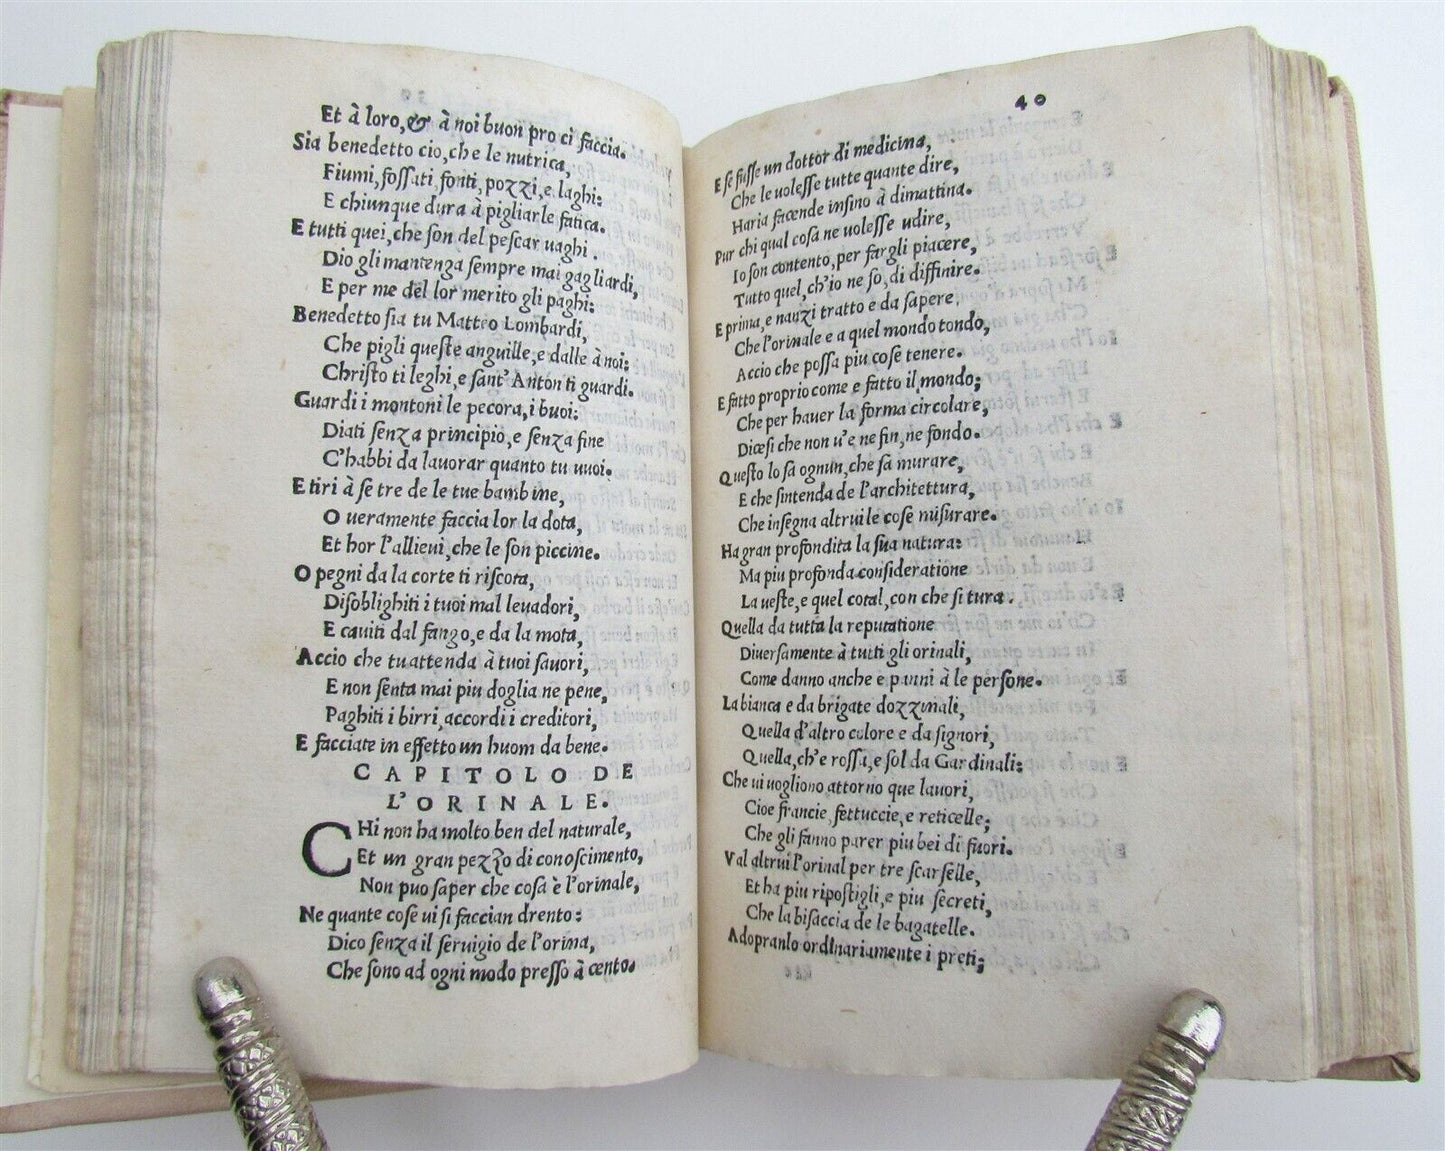 Et à loro, & à noi buon pro ci faccia.
Sia benedetto cio, che le nutrica,
Fiumi, fossati fonti, pozzi, e laghi:
E chiunque dura à pigliarle fatica.
E tutti quei, che son del pescar uaghi.
Dio gli mantenga sempre mai gagliardi,
E per me del lor merito gli paghi:
Benedetto sia tu Matteo Lombardi,
Che pigli queste anguille, e dalle à noi:
Christo ti leghi, e sant' Anton ti guardi.
Guardi i montoni le pecora, i buoi:
Diati senza principio, e senza fine
C'habbi da lauorar quanto tu uuoi.
E tiri à se tre de le tue bambine,
O ueramente faccia lor la dota,
Et hor l'allieui, che le son piccine.
O pegni da la corte ti riscota,
Disoblighiti i tuoi mal leuadori,
E cauiti dal fango, e da la mota,
Accio che tu attenda à tuoi lauori,
E non senta mai piu doglia ne pene,
Paghiti i birri, accordi i creditori,
E facciate in effetto un huom da bene.
CAPITOLO DE
L'ORINALE.
CHi non ha molto ben del naturale,
Et un gran pezzo di conoscimento,
Non puo saper che cosa è l'orinale,
Ne quante cose ui si faccian drento:
Dico senza il seruigio de l'orina,
Che sono ad ogni modo presso à cento.
40
E se fusse un dottor di medicina,
Che le uolesse tutte quante dire,
Haria facende insino à dimattina.
Pur chi qual cosa ne uolesse udire,
Io son contento, per fargli piacere,
Tutto quel, ch'io ne so, di diffinire.
E prima, e nanzi tratto e da sapere,
Che l'orinale e a quel mondo tondo,
Accio che possa piu cose tenere.
E fatto proprio come e fatto il mondo;
Che per hauer la forma circolare,
Dicesi che non u'e ne fin, ne fondo.
Questo lo sa ognun, che sa murare,
E che sintenda de l'architettura,
Che insegna altrui le cose misurare.
Ha gran profondita la sua natura:
Ma piu profonda consideratione
La ueste, e quel cotal, con che si tura.
Quella da tutta la reputatione
Diuersamente à tutti gli orinali,
Come danno anche e panni à le persone.
La bianca e da brigate dozzinali,
Quella d'altro colore e da signori,
Quella, ch'e rossa, e sol da Gardinali:
Che ui uogliono attorno que lauori,
Cioe francie, fettuccie, e reticelle;
Che gli fanno parer piu bei di fuori.
Val altrui l'orinal per tre scarselle,
Et ha piu ripostigli, e piu secreti,
Che la bisaccia de le bagatelle.
Adopranlo ordinariamente i preti;